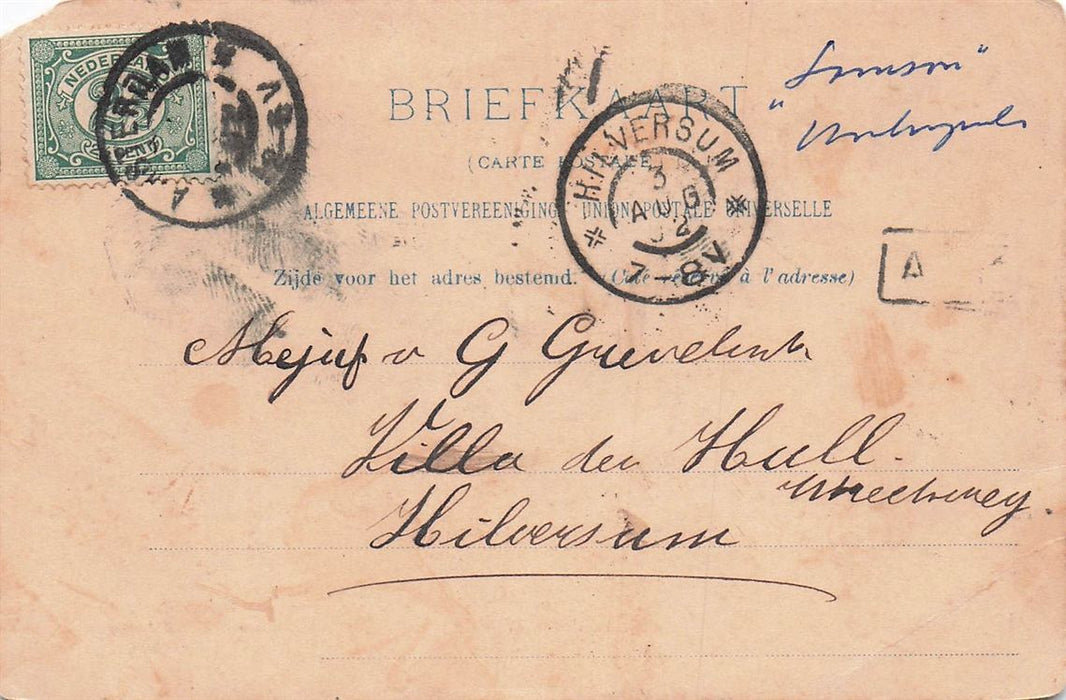 NEDERLAND
BRIEFKAART
(CARTE POSTALE)
HILVERSUM
3
AUG
7-8V
ALGEMEENE POSTVEREENIGING UNION POSTALE UNIVERSELLE
Zijde voor het adres bestemd. (Côté réservé à l'adresse)
A
Mejuf v G
Villa den Hull.
Utrechtweg
Hilversum